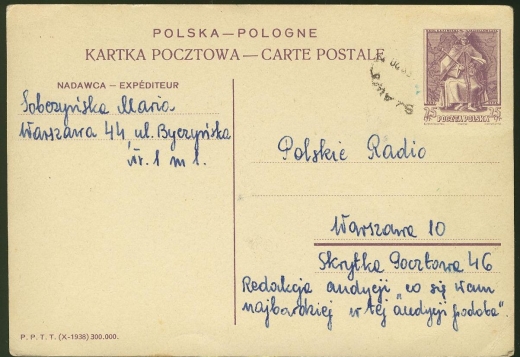 POLSKA—POLOGNE
KARTKA POCZTOWA — CARTE POSTALE
NADAWCA — EXPÉDITEUR
Sobczyńska Maria
Warszawa 44 ul. Byczyńska
Nr. 1 m 1.
25 25
POCZTA POLSKA
Polskie Radio
Warszawa 10
Skrytka Pocztowa 46
Redakcja audycji „co się wam
najbardziej w tej audycji podoba".
P. P. T. T. (X-1938) 300.000.